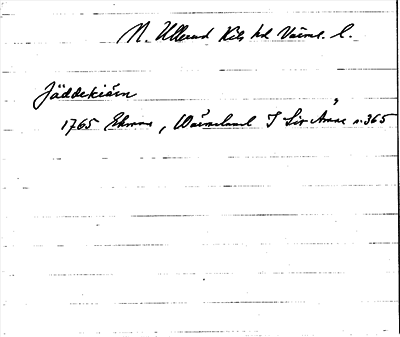 N. Ullerud Kils hd Värml. l.
Jäddekiärn
1765 Ekman, Wärmeland I Sir Arne s. 365